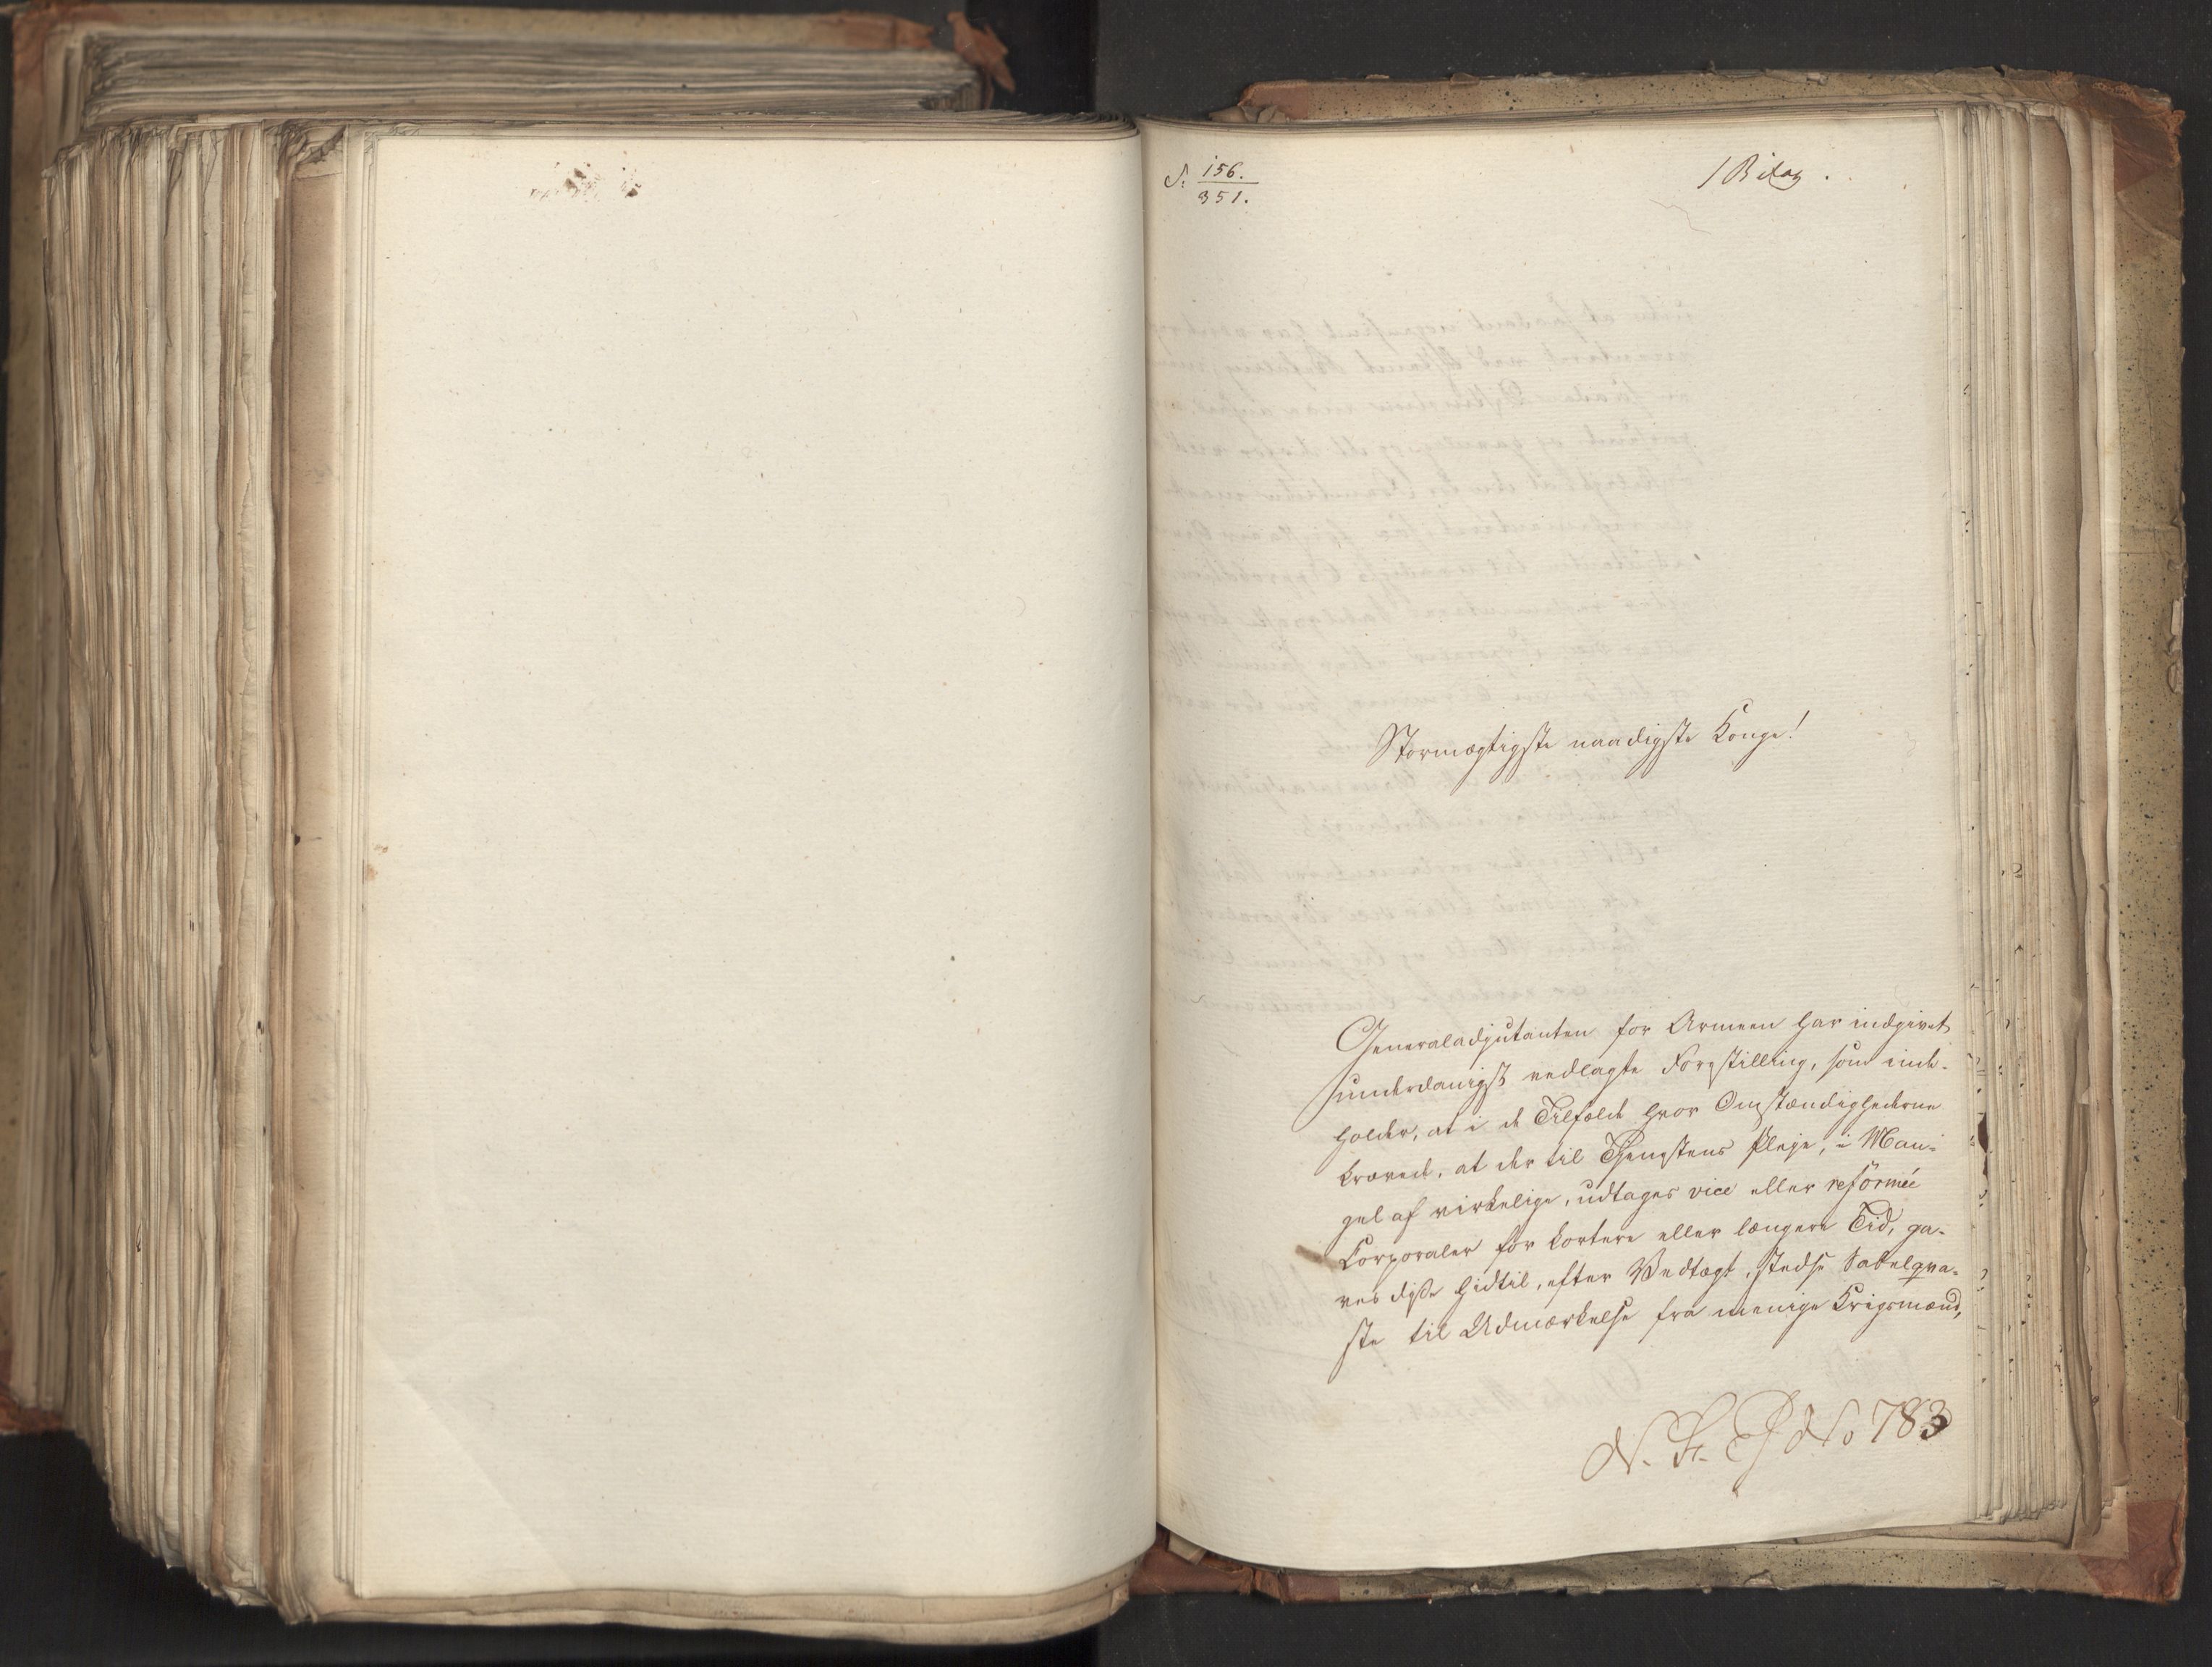 S: 156.
351.
1 Bilag.
Stormægtigste naadigste Konge!
Generaladjutanten for Armeen har indgivet
underdanigst vedlagte Forestilling, som inde-
holder, at i de Tilfælde hvor Omstændighederne
krævede, at der til Tjenestens Pleje, i Man-
gel af virkelige, udtages vice eller reformée
Corporaler for kortere eller længere Tid, ga-
ves disse hidtil, efter Vedtægt, stedse Sabelqva-
ste til Udmærkelse fra menige Krigsmænd,
No 783